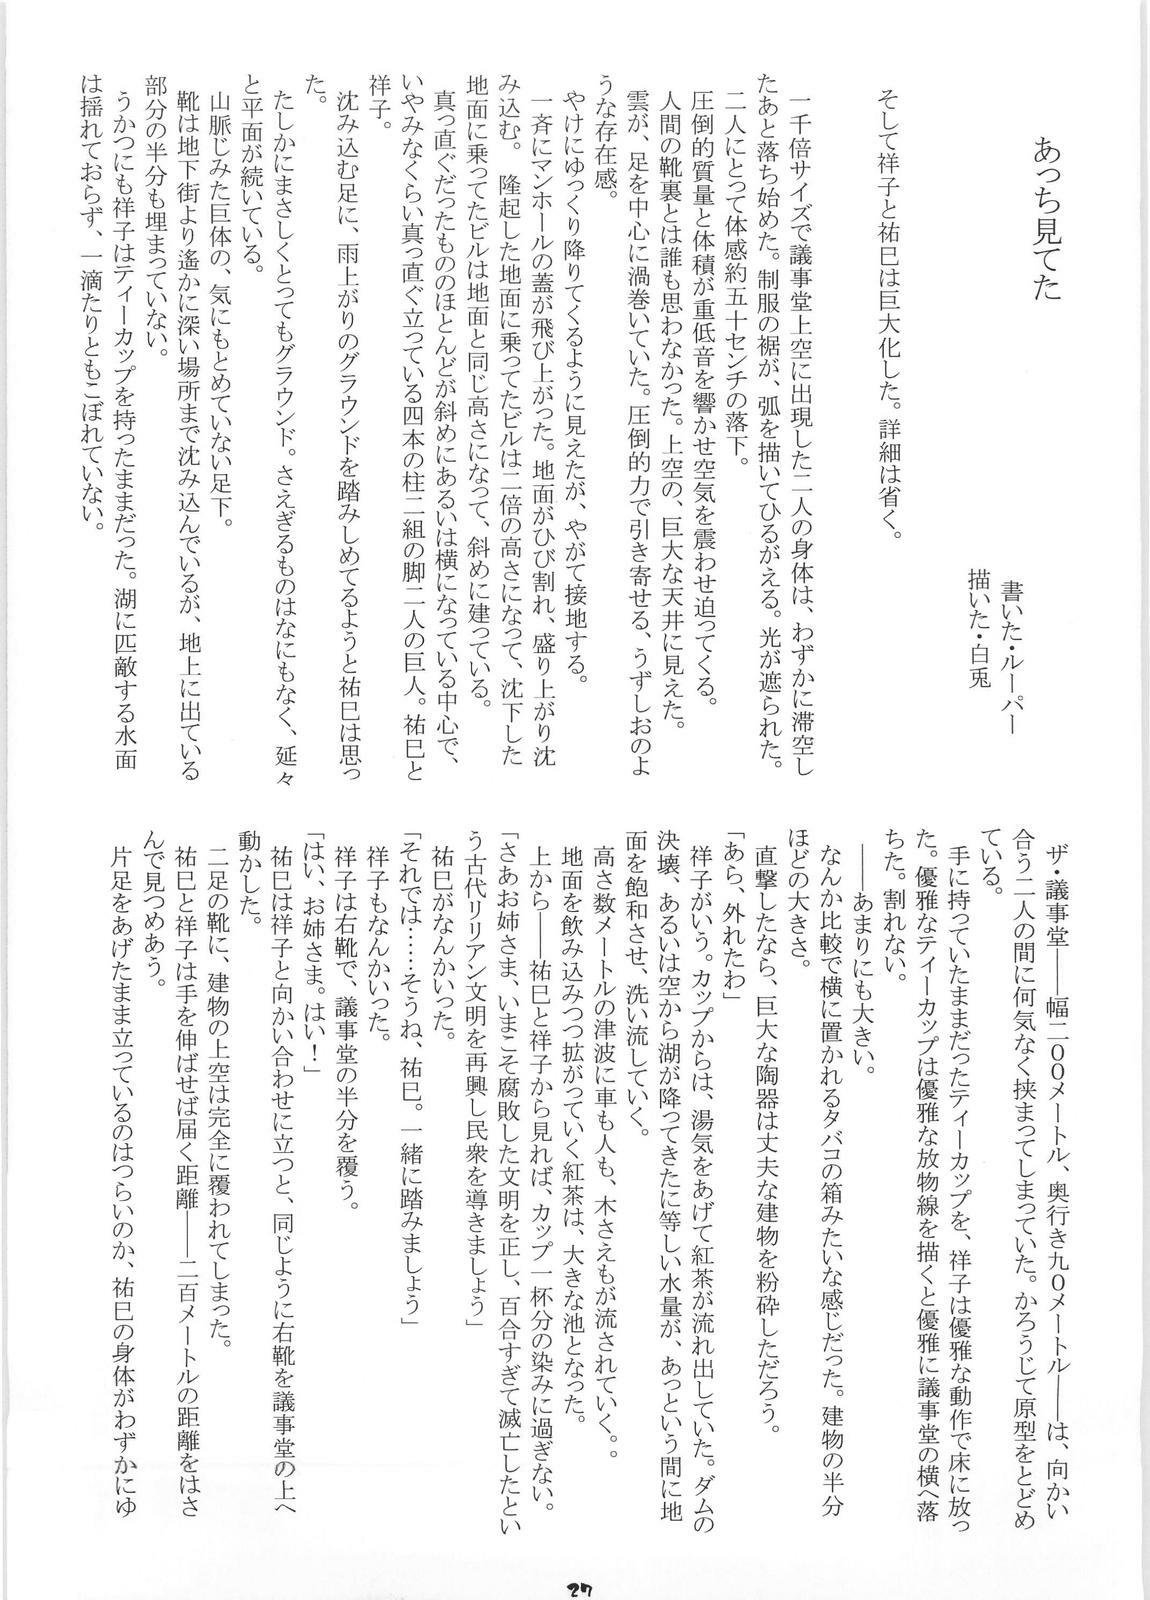 あっち見てた
書いた・ルーパー
描いた・白兎
そして祥子と祐巳は巨大化した。詳細は省く。
一千倍サイズで議事堂上空に出現した二人の身体は、わずかに滞空し
たあと落ち始めた。制服の裾が、弧を描いてひるがえる。光が遮られた。
二人にとって体感約五十センチの落下。
圧倒的質量と体積が重低音を響かせ空気を震わせ迫ってくる。
人間の靴裏とは誰も思わなかった。上空の、巨大な天井に見えた。
雲が、足を中心に渦巻いていた。圧倒的力で引き寄せる、うずしおのよ
うな存在感。
やけにゆっくり降りてくるように見えたが、やがて接地する。
一斉にマンホールの蓋が飛び上がった。地面がひび割れ、盛り上がり沈
み込む。隆起した地面に乗ってたビルは二倍の高さになって、沈下した
地面に乗ってたビルは地面と同じ高さになって、斜めに建っている。
真っ直ぐだったもののほとんどが斜めにあるいは横になっている中心で、
いやみなくらい真っ直ぐ立っている四本の柱二組の脚二人の巨人。祐巳と
祥子。
沈み込む足に、雨上がりのグラウンドを踏みしめてるようと祐巳は思っ
た。
たしかにまさしくとってもグラウンド。さえぎるものはなにもなく、延々
と平面が続いている。
山脈じみた巨体の、気にもとめていない足下。
靴は地下街より遙かに深い場所まで沈み込んでいるが、地上に出ている
部分の半分も埋まっていない。
うかつにも祥子はティーカップを持ったままだった。湖に匹敵する水面
は揺れておらず、一滴たりともこぼれていない。
ザ・議事堂――幅二００メートル、奥行き九０メートル――は、向かい
合う二人の間に何気なく挟まってしまっていた。かろうじて原型をとどめ
ている。
手に持っていたままだったティーカップを、祥子は優雅な動作で床に放っ
た。優雅なティーカップは優雅な放物線を描くと優雅に議事堂の横へ落
ちた。割れない。
――あまりにも大きい。
なんか比較で横に置かれるタバコの箱みたいな感じだった。建物の半分
ほどの大きさ。
直撃したなら、巨大な陶器は丈夫な建物を粉砕しただろう。
「あら、外れたわ」
祥子がいう。カップからは、湯気をあげて紅茶が流れ出していた。ダムの
決壊、あるいは空から湖が降ってきたに等しい水量が、あっという間に地
面を飽和させ、洗い流していく。
高さ数メートルの津波に車も人も、木さえもが流されていく。。
地面を飲み込みつつ拡がっていく紅茶は、大きな池となった。
上から――祐巳と祥子から見れば、カップ一杯分の染みに過ぎない。
「さあお姉さま、いまこそ腐敗した文明を正し、百合すぎて滅亡したとい
う古代リリアン文明を再興し民衆を導きましょう」
祐巳がなんかいった。
「それでは……そうね、祐巳。一緒に踏みましょう」
祥子もなんかいった。
祥子は右靴で、議事堂の半分を覆う。
「はい、お姉さま。はい！」
祐巳は祥子と向かい合わせに立つと、同じように右靴を議事堂の上へ
動かした。
二足の靴に、建物の上空は完全に覆われてしまった。
祐巳と祥子は手を伸ばせば届く距離――二百メートルの距離をはさ
んで見つめあう。
片足をあげたまま立っているのはつらいのか、祐巳の身体がわずかにゆ
27